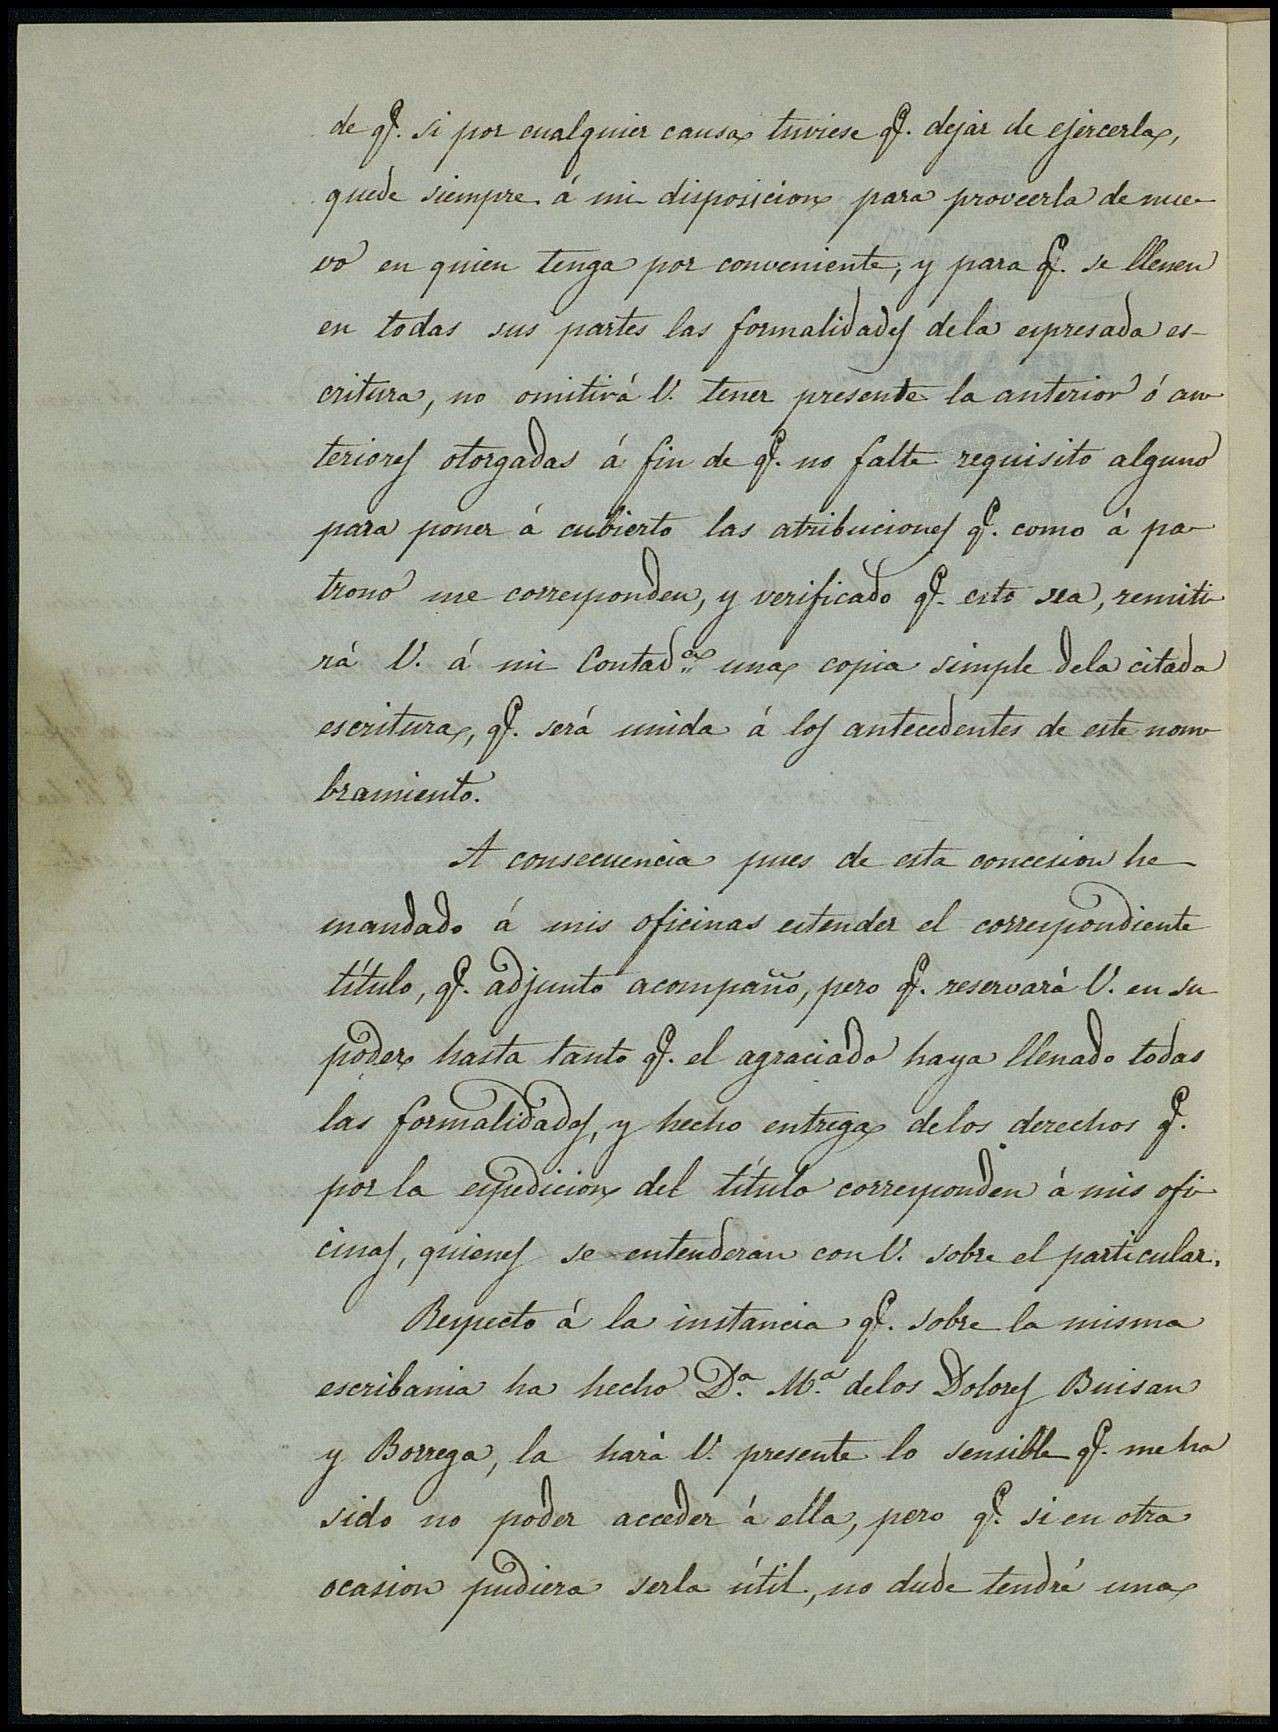 de q.e si por cualquier causa tuviese q.e dejar de ejercerla,
quede siempre á mi disposicion para proveerla de nue-
vo en quien tenga por conveniente, y para q.e se llenen
en todas sus partes las formalidades dela espresada es-
critura, no omitirá V. tener presente la anterior ó an-
teriores otorgadas á fin de q.e no falte requisito alguno
para poner á cubierto las atribuciones q.e como á pa-
trono me corresponden, y verificado q.e esto sea, remiti-
rá V. á mi Contad.a una copia simple dela citada
escritura, q.e será unida á los antecedentes de este nom-
bramiento.
A consecuencia pues de esta concesion he
mandado á mis oficinas estender el correspondiente
título, q.e adjunto acompaño, pero q.e reservará V. en su
poder hasta tanto q.e el agraciado haya llenado todas
las formalidades, y hecho entrega delos derechos q.e
por la espedicion del título corresponden á mis ofi-
cinas, quienes se entenderan con V. sobre el particular.
Respecto á la instancia q.e sobre la misma
escribania ha hecho D.a M.a delos Dolores Buisan
y Borrega, la hará V. presente lo sensible q.e me ha
sido no poder acceder á ella, pero q.e si en otra
ocasion pudiera serla útil, no dude tendré una